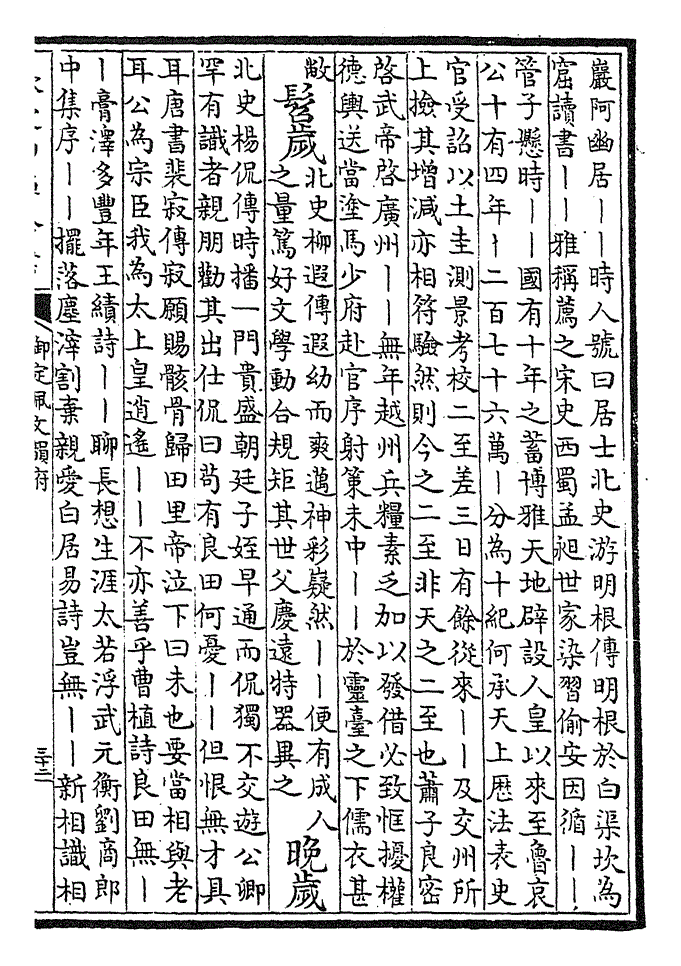 巖阿幽居丨丨時人號曰居士北史游明根傳明根於白渠坎為
窟讀書丨丨雅稱薦之宋史西蜀孟昶世家染習偷安因循丨丨
管子懸時丨丨國有十年之蓄博雅天地辟設人皇以來至魯哀
公十有四年丨二百七十六萬丨分為十紀何承天上厯法表史
官受詔以土圭測景考校二至差三日有餘從來丨丨及交州所
上撿其增減亦相符驗然則今之二至非天之二至也蕭子良密
啓武帝啓廣州丨丨無年越州兵糧素乏加以發借必致恇擾權
德輿送當塗馬少府赴官序射策未中丨丨於靈臺之下儒衣甚
敝
髫歲
北史柳遐傳遐幼而爽邁神彩嶷然丨丨便有成人
之量篤好文學動合規矩其世父慶遠特器異之
晚歲
北史楊侃傳時播一門貴盛朝廷子姪早通而侃獨不交遊公卿
罕有識者親朋勸其出仕侃曰茍有良田何憂丨丨但恨無才具
耳唐書裴寂傳寂願賜骸骨歸田里帝泣下曰未也要當相與老
耳公為宗臣我為太上皇逍遙丨丨不亦善乎曹植詩良田無丨
丨膏澤多豐年王績詩丨丨聊長想生涯太若浮武元衡劉商郎
中集序丨丨擺落塵滓割棄親愛白居易詩豈無丨丨新相識相
御定佩文韻府
三十三